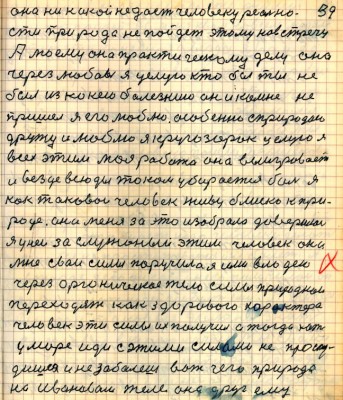 39
она никакой не даст человеку реально-
сти природа не пойдет этому навстречу
А моему она практическому делу она
через любовь я целую кто бы ты не
был из какою болезнию он и ко мне не
пришел я его люблю, особенно с природою
дружу и люблю я кругозорок целую я
всех этим моя работа она выигровает
и везде всюды током убирается бо я
как таковой человек живу близко к при-
роде, она меня за это избрала доверилась
я у ней заслужоный этим человек она
мне свои силы поручила я ими владею
через органическое тело силы природной
переходят как здорового характера
человек эти силы их получил а тогда как
у море иди с этими силами не просту-
дишся и не заболеш вот чего природа
на Ивановом теле она друг ему